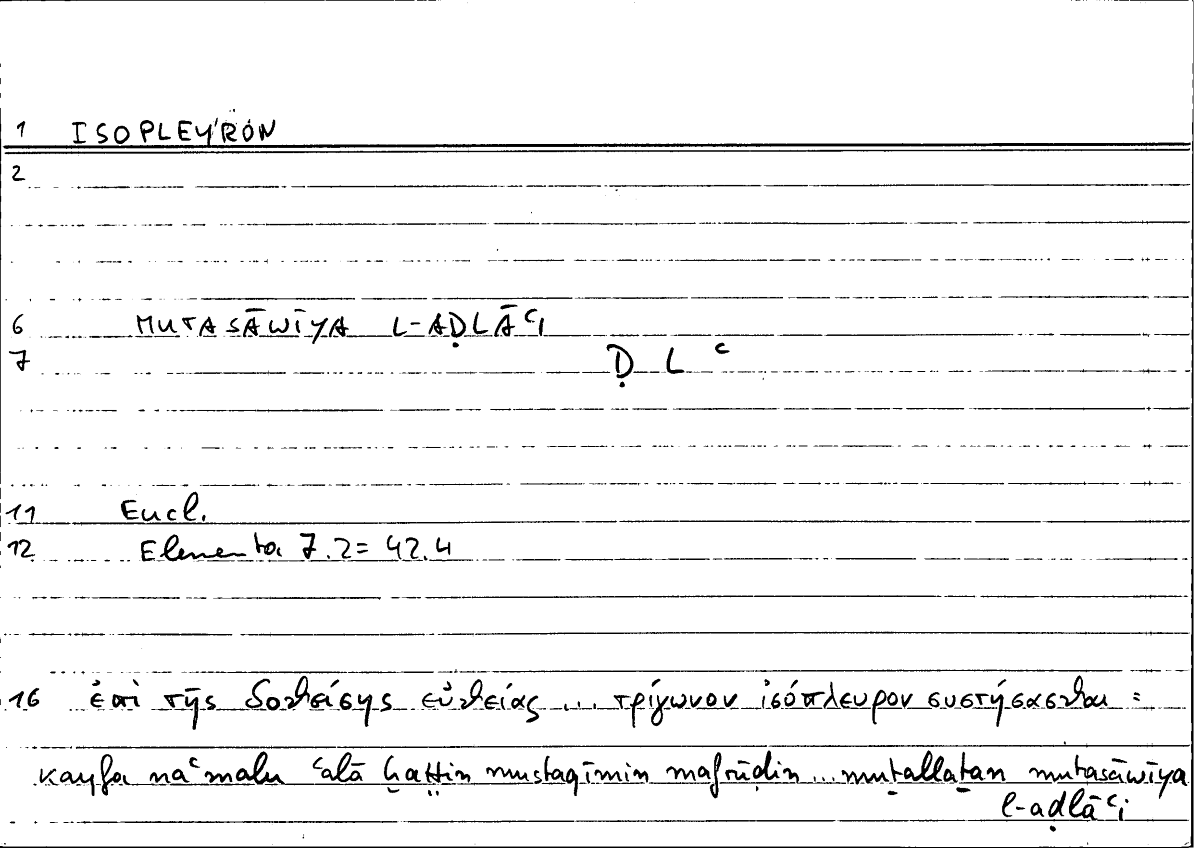 1 ISOPLEÝRON
2
6 MUTASĀWĪYA L-AḌLĀʿI
7 Ḍ L ʿ
11 Eucl.
12 Elementa 7.2 = 42.4
16 ἐπὶ τῆς δοθείσης εὐθείας ... τρίγωνον ἰσόπλευρον συστήσασθαι =
kayfa naʿmalu ʿalā ḫaṭṭin mustaqīmin mafrūḍin ... muṯallaṯan mutasāwīya
l-aḍlāʿi